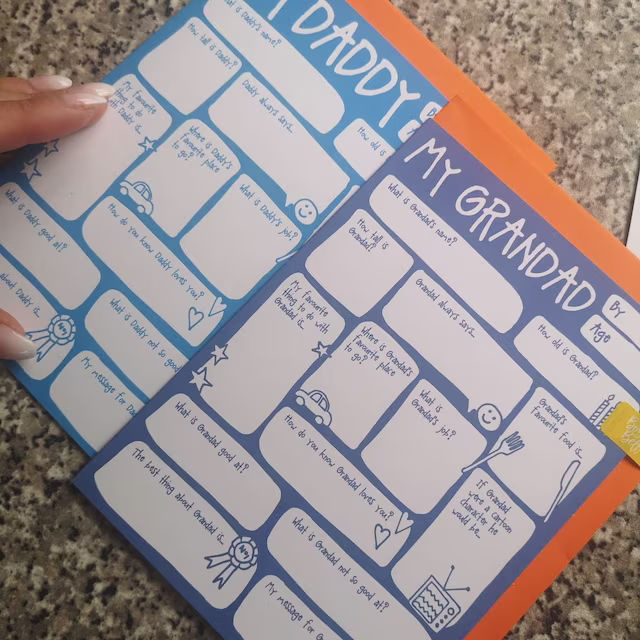 DADDY
What is Daddy's name?
How tall is
Daddy?
Daddy always says...
How old is
My favourite
thing to do
Daddy is...
Where is Daddy's
favourite place
to go?
What is
Daddy's job?
What is Daddy good at?
How do you know Daddy loves you?
about Daddy is...
What is Daddy not so good
My message for
MY GRANDAD
By
Age
What is Grandad's name?
How tall is
Grandad?
Grandad always says...
How old is Grandad?
My favourite
thing to do with
Grandad is...
Where is Grandad's
favourite place
to go?
What is
Grandad's job?
Grandad's
favourite food is...
What is Grandad good at?
How do you know Grandad loves you?
If Grandad
were a cartoon
character he
would be...
The best thing about Grandad is...
What is Grandad not so good at?
My message for